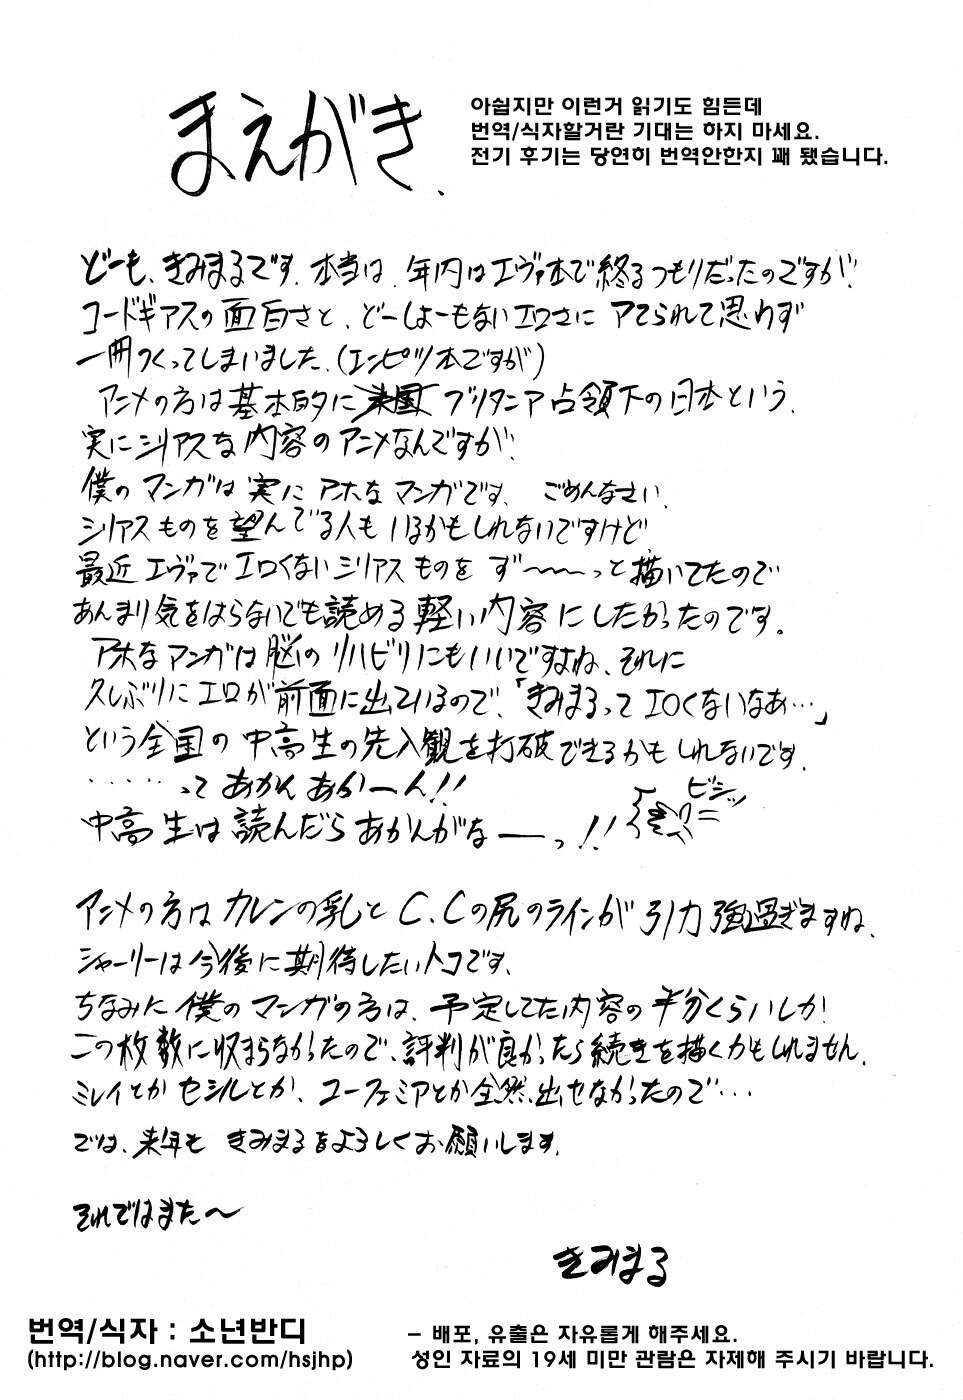 まえがき、
아쉽지만 이런거 읽기도 힘든데
번역/식자할거란 기대는 하지 마세요.
전기 후기는 당연히 번역안한지 꽤 됐습니다.
どーも、きみまるです。本当は、年内はエヴァ本で終るつもりだったのですが、
コードギアスの面白さと、どーしよーもないエロさに アてられて思わず
一冊つくってしまいました。(エンピツ本ですが)
アニメの方は基本的に米国ブリタニア占領下の日本という、
実にシリアスな内容のアニメなんですが、
僕のマンガは実にアホなマンガです、ごめんなさい。
シリアスものを望んでる人もいるかもしれないですけど
最近エヴァでエロくないシリアスものを ず〜〜〜っと描いてたので
あんまり気をはらないでも読める軽い内容にしたかったのです。
アホなマンガは脳のリハビリにもいいですよね、それに
久しぶりにエロが前面に出ているので、「きみまるってエロくないなあ…」
という全国の中高生の先入観を打破できるかもしれないです。
……ってあかんあかーん!!
ビシッ
中高生は読んだらあかんがなーっ!!
アニメの方はカレンの乳とC.Cの尻のラインが引力強過ぎますね、
シャーリーは今後に期待したいトコです、
ちなみに僕のマンガの方は、予定してた内容の半分くらいしか
この枚数に収まらなかったので、評判が良かったら続きを描くかもしれません。
ミレイとかセシルとか、ユーフェミアとか全然出せなかったので…
では、来年もきみまるをよろしくお願いします。
それではまた〜
きみまる
번역/식자 : 소년반디
(http://blog.naver.com/hsjhp)
– 배포, 유출은 자유롭게 해주세요.
성인 자료의 19세 미만 관람은 자제해 주시기 바랍니다.